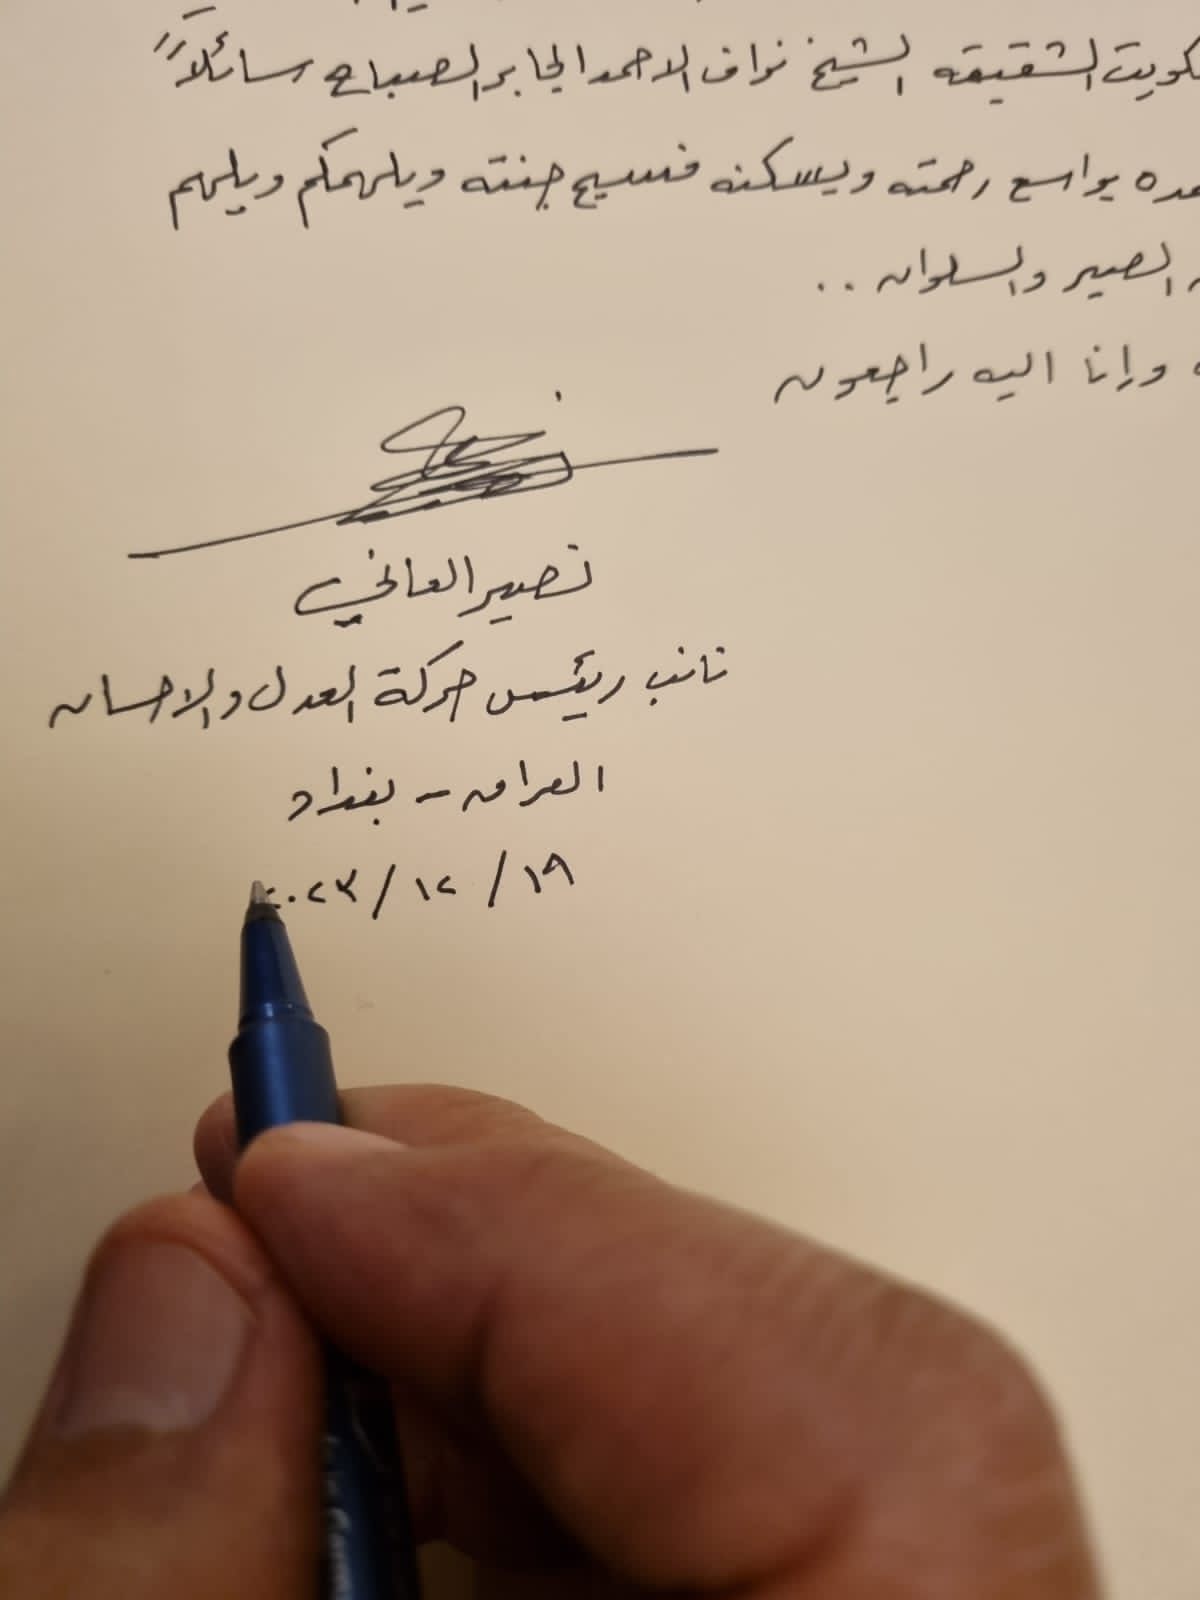 الشقيقه الشيخ نواف الاحمد الجابر الصباح سائلاً
بواسع رحمته ويسكنه فسيح جنته ويلهمكم ويلهم
الصبر والسلوان ..
وإنا اليه راجعون
نصير العاني
نائب رئيس حركة العدل والاحسان
العراق - بغداد
١٩ / ١٢ / ٢٠٢٣